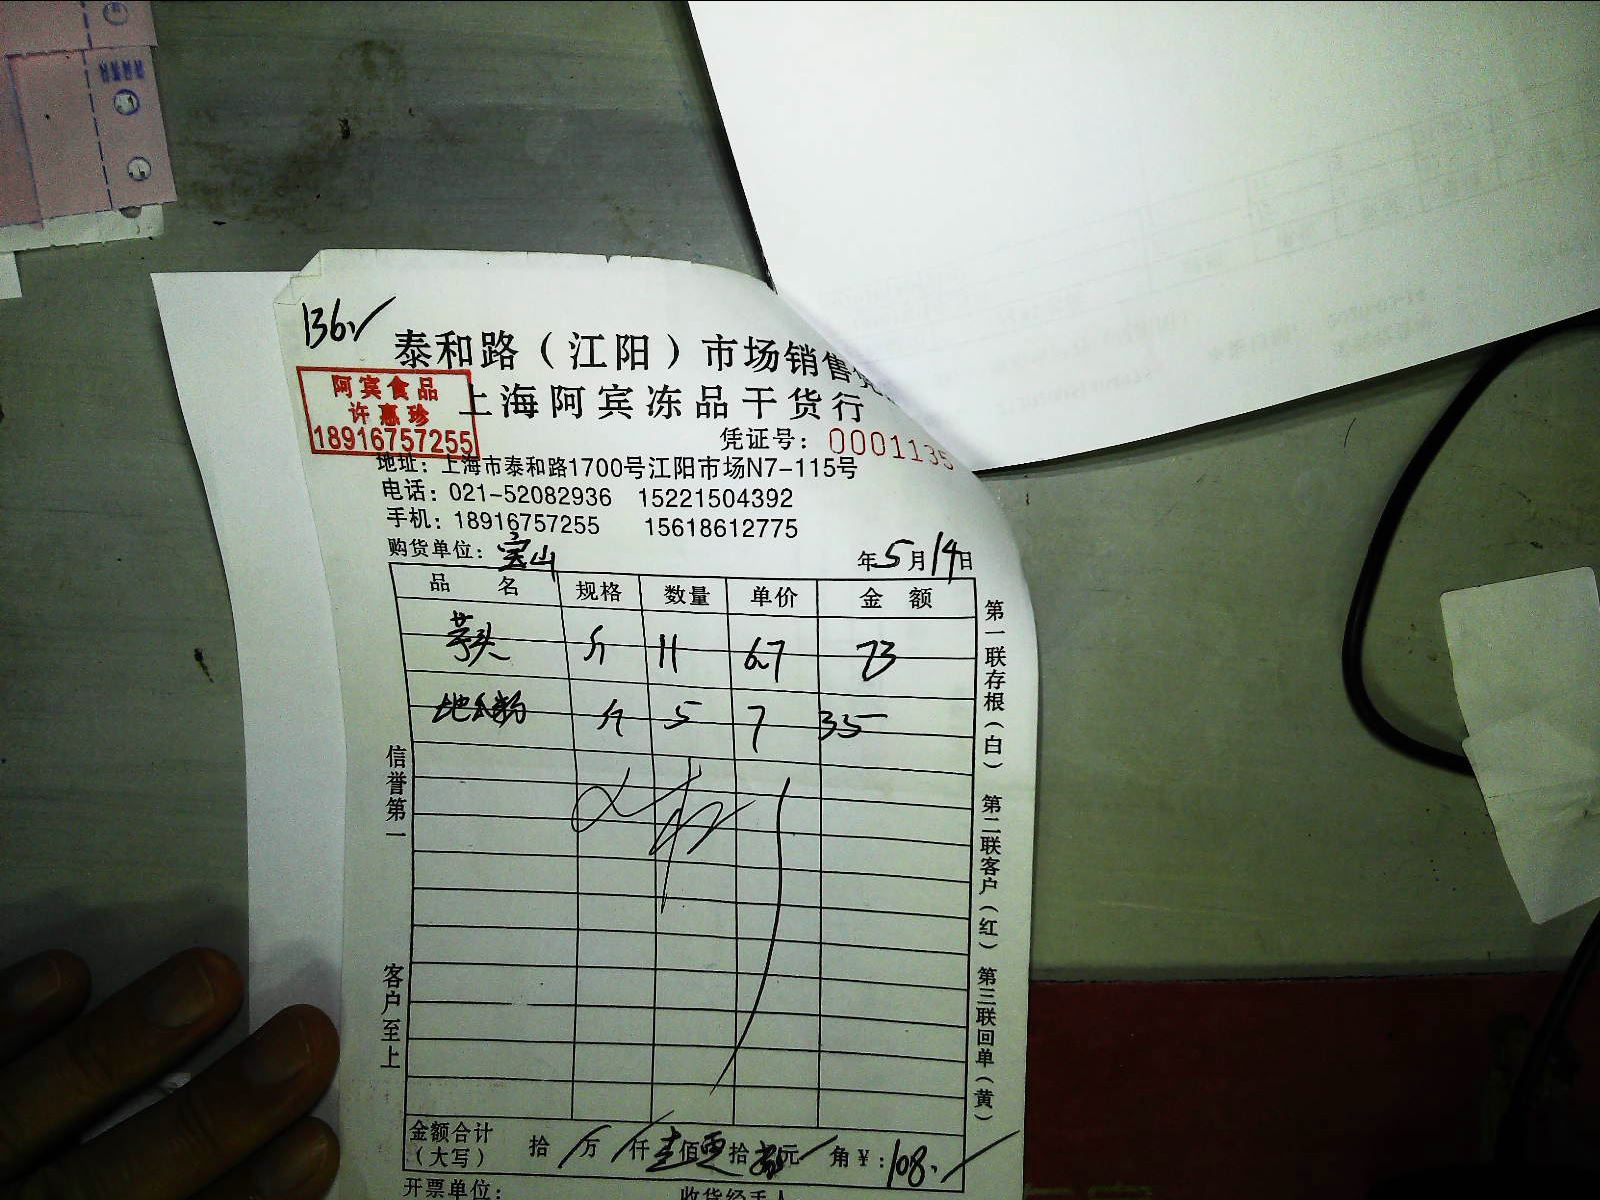 136.
泰和路（江阳）市场销售
阿宾食品
许惠珍
18916757255
上海阿宾冻品干货行
凭证号：0001135
地址：上海市泰和路1700号江阳市场N7-115号
电话：021-52082936 15221504392
手机：18916757255 15618612775
购货单位：宝山 年5月14日
品名 规格 数量 单价 金额
芋头 斤 11 6.7 73
地瓜粉 斤 5 7 35
信誉第一
客户至上
第一联存根（白） 第二联客户（红） 第三联回单（黄）
金额合计（大写） 拾 万 仟 壹佰 零拾 捌元 角 ¥：108.
开票单位： 收货经手人